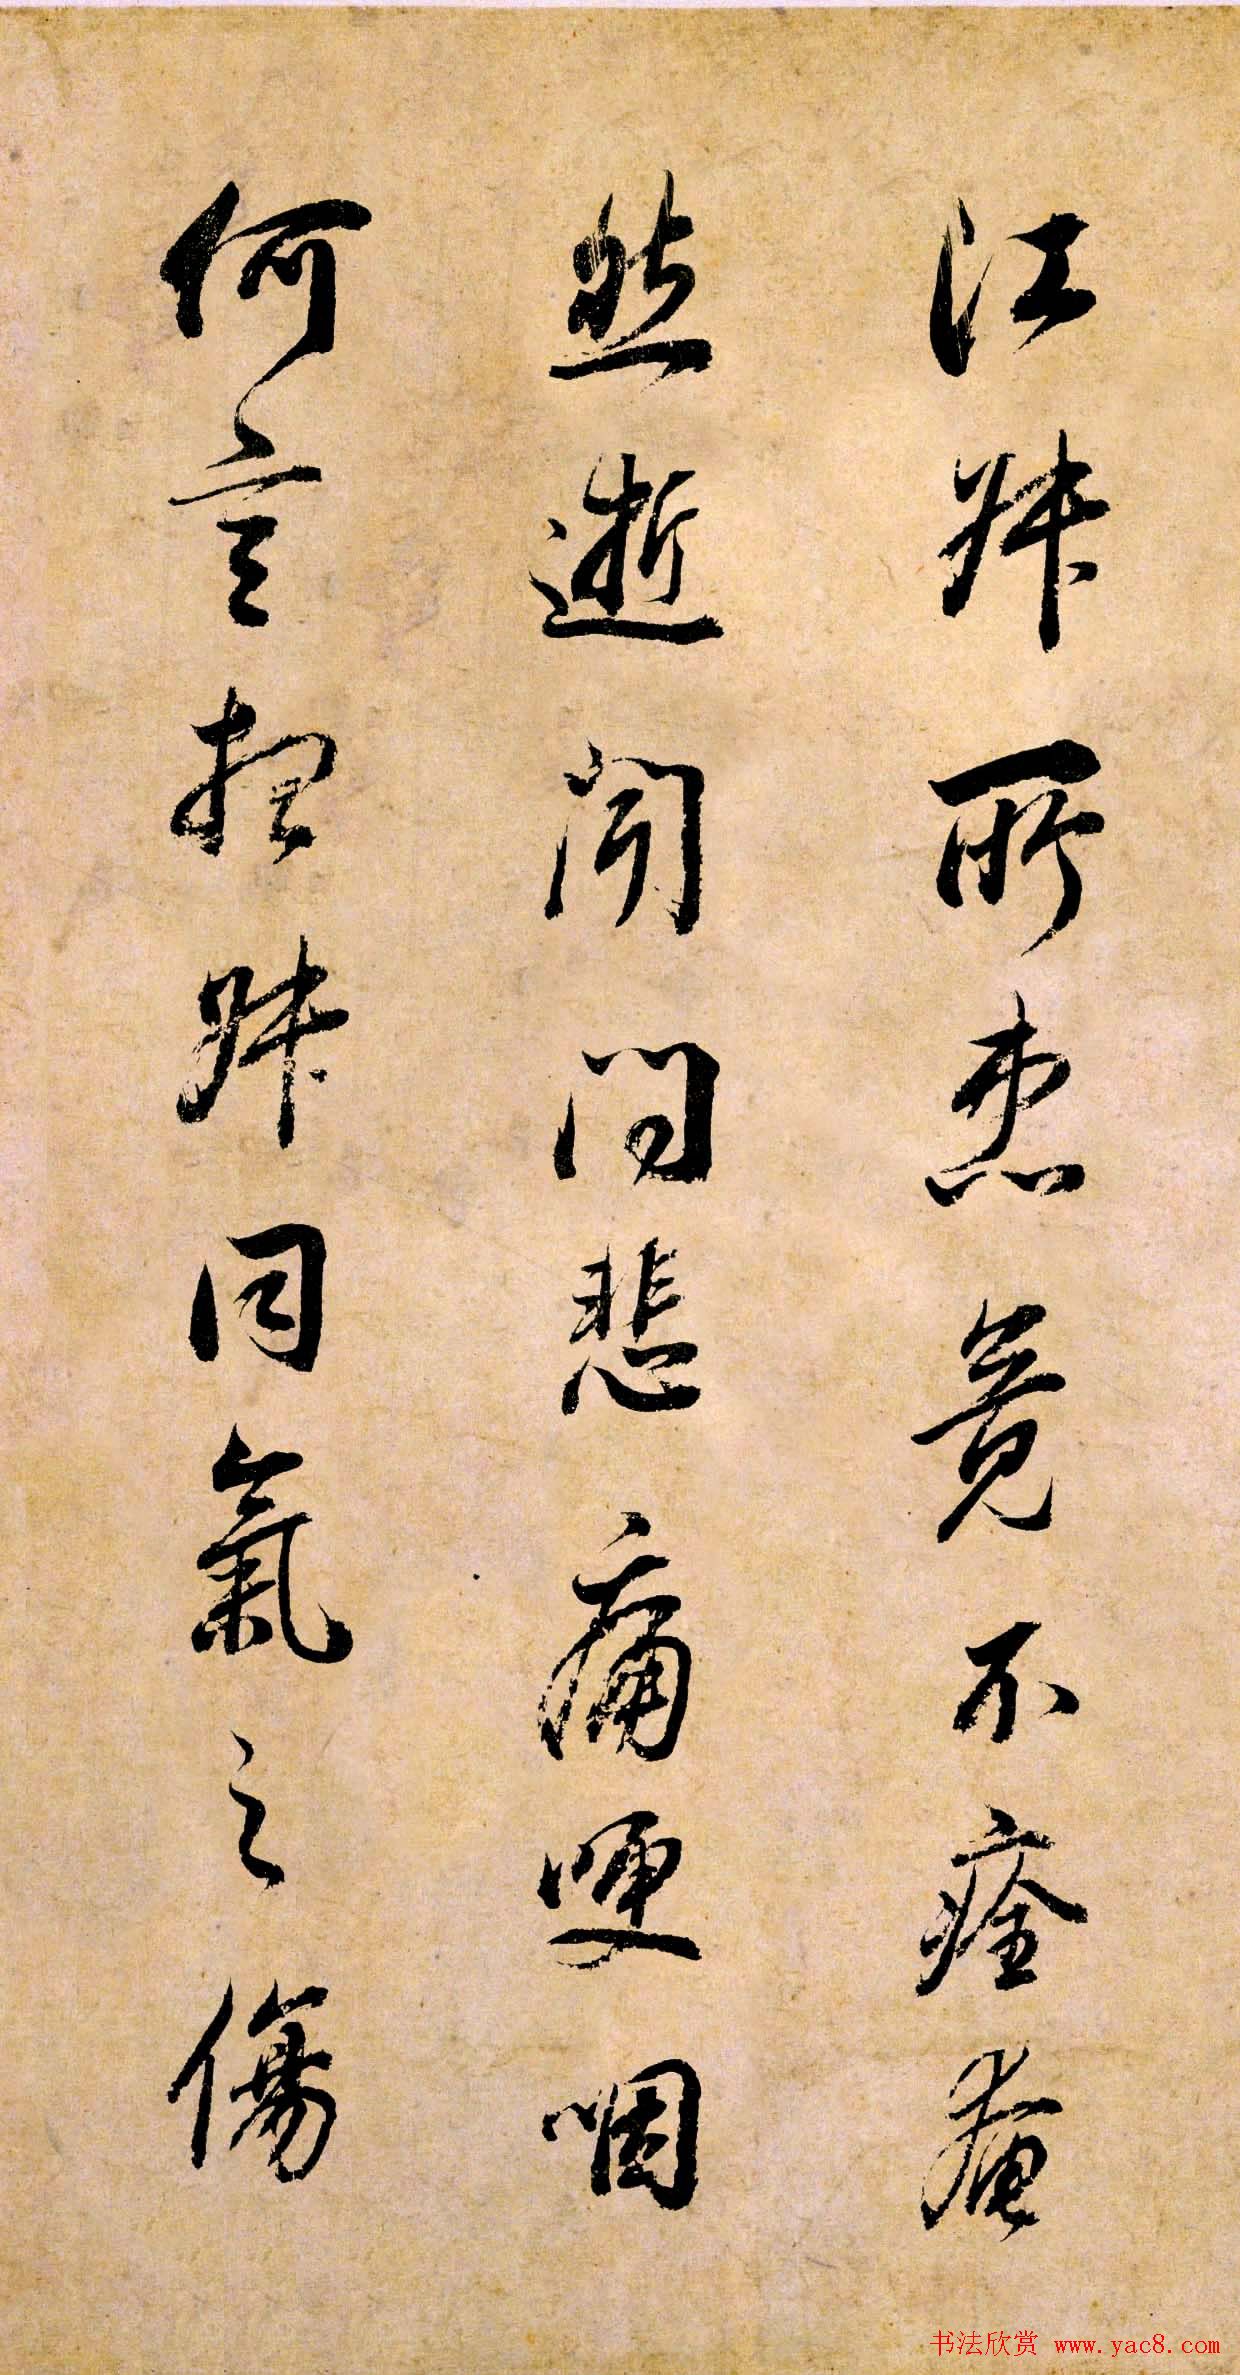 江妹所患竟不痊奄
然逝聞問悲痛哽咽
何言相妹同氣之傷
书法欣赏 www.yac8.com